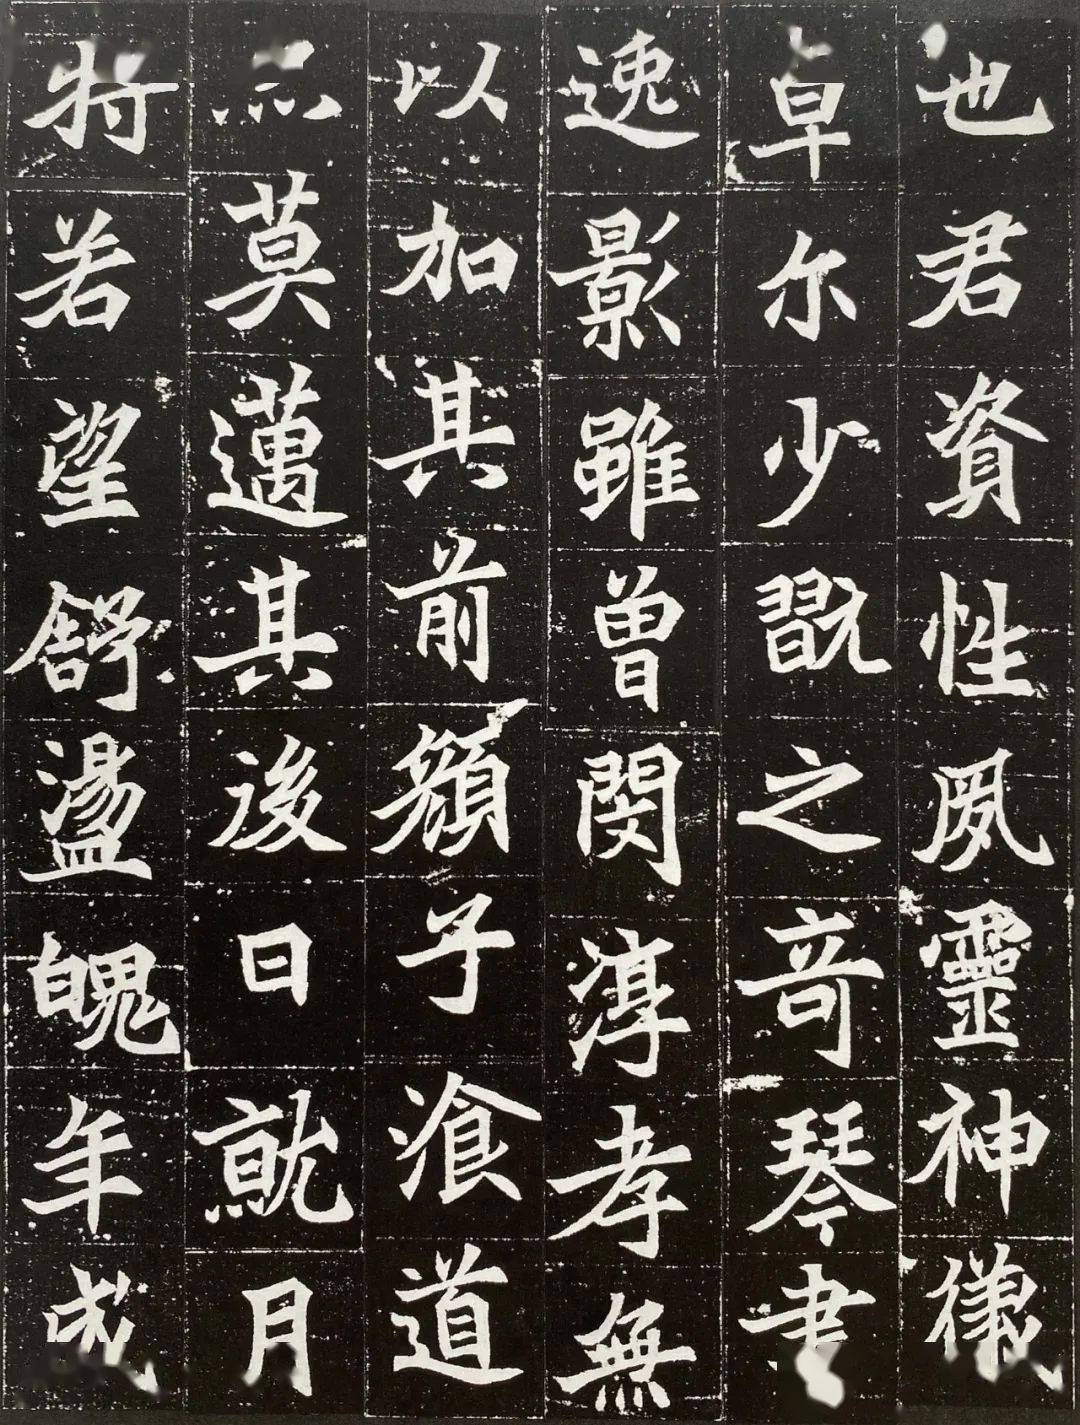 也君資性夙靈神儀
卓尓少翫之奇琴書
逸影雖曾閔淳孝無
以加其前顏子湌道
亦莫邁其後日就月
将若望舒盪魄年成